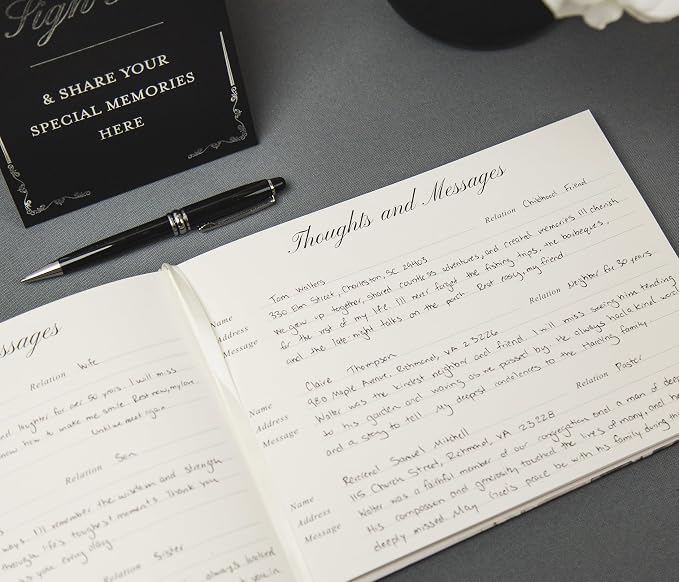 Sign
& SHARE YOUR
SPECIAL MEMORIES
HERE
ssages
Relation Wife
and laughter for over 50 years. I will miss
how to make me smile. Rest now, my love
Until we meet again.
Relation Son
ways. I'll remember the wisdom and strength
through life's toughest moments. Thank you
us you every day.
Relation Sister
always
you in
Thoughts and Messages
Name Tom Walters Relation Childhood Friend
Address 330 Elm Street, Charleston, SC 29403
Message We grew up together, shared countless adventures, and created memories I'll cherish
for the rest of my life. I'll never forget the fishing trips, the barbeques,
and the late-night talks on the porch. Rest easy, my friend.
Name Claire Thompson Relation Neighbor for 30 years.
Address 980 Maple Avenue, Richmond, VA 23226
Message Walter was the kindest neighbor and friend. I will miss seeing him tending
to his garden and waving as we passed by. He always had a kind word
and a story to tell. My deepest condolences to the Harding family.
Name Reverend Samuel Mitchell Relation Pastor
Address 115 Church Street, Richmond, VA 23228
Message Walter was a faithful member of our congregation and a man of deep
His compassion and generosity touched the lives of many, and he
deeply missed. May God's peace be with his family during this